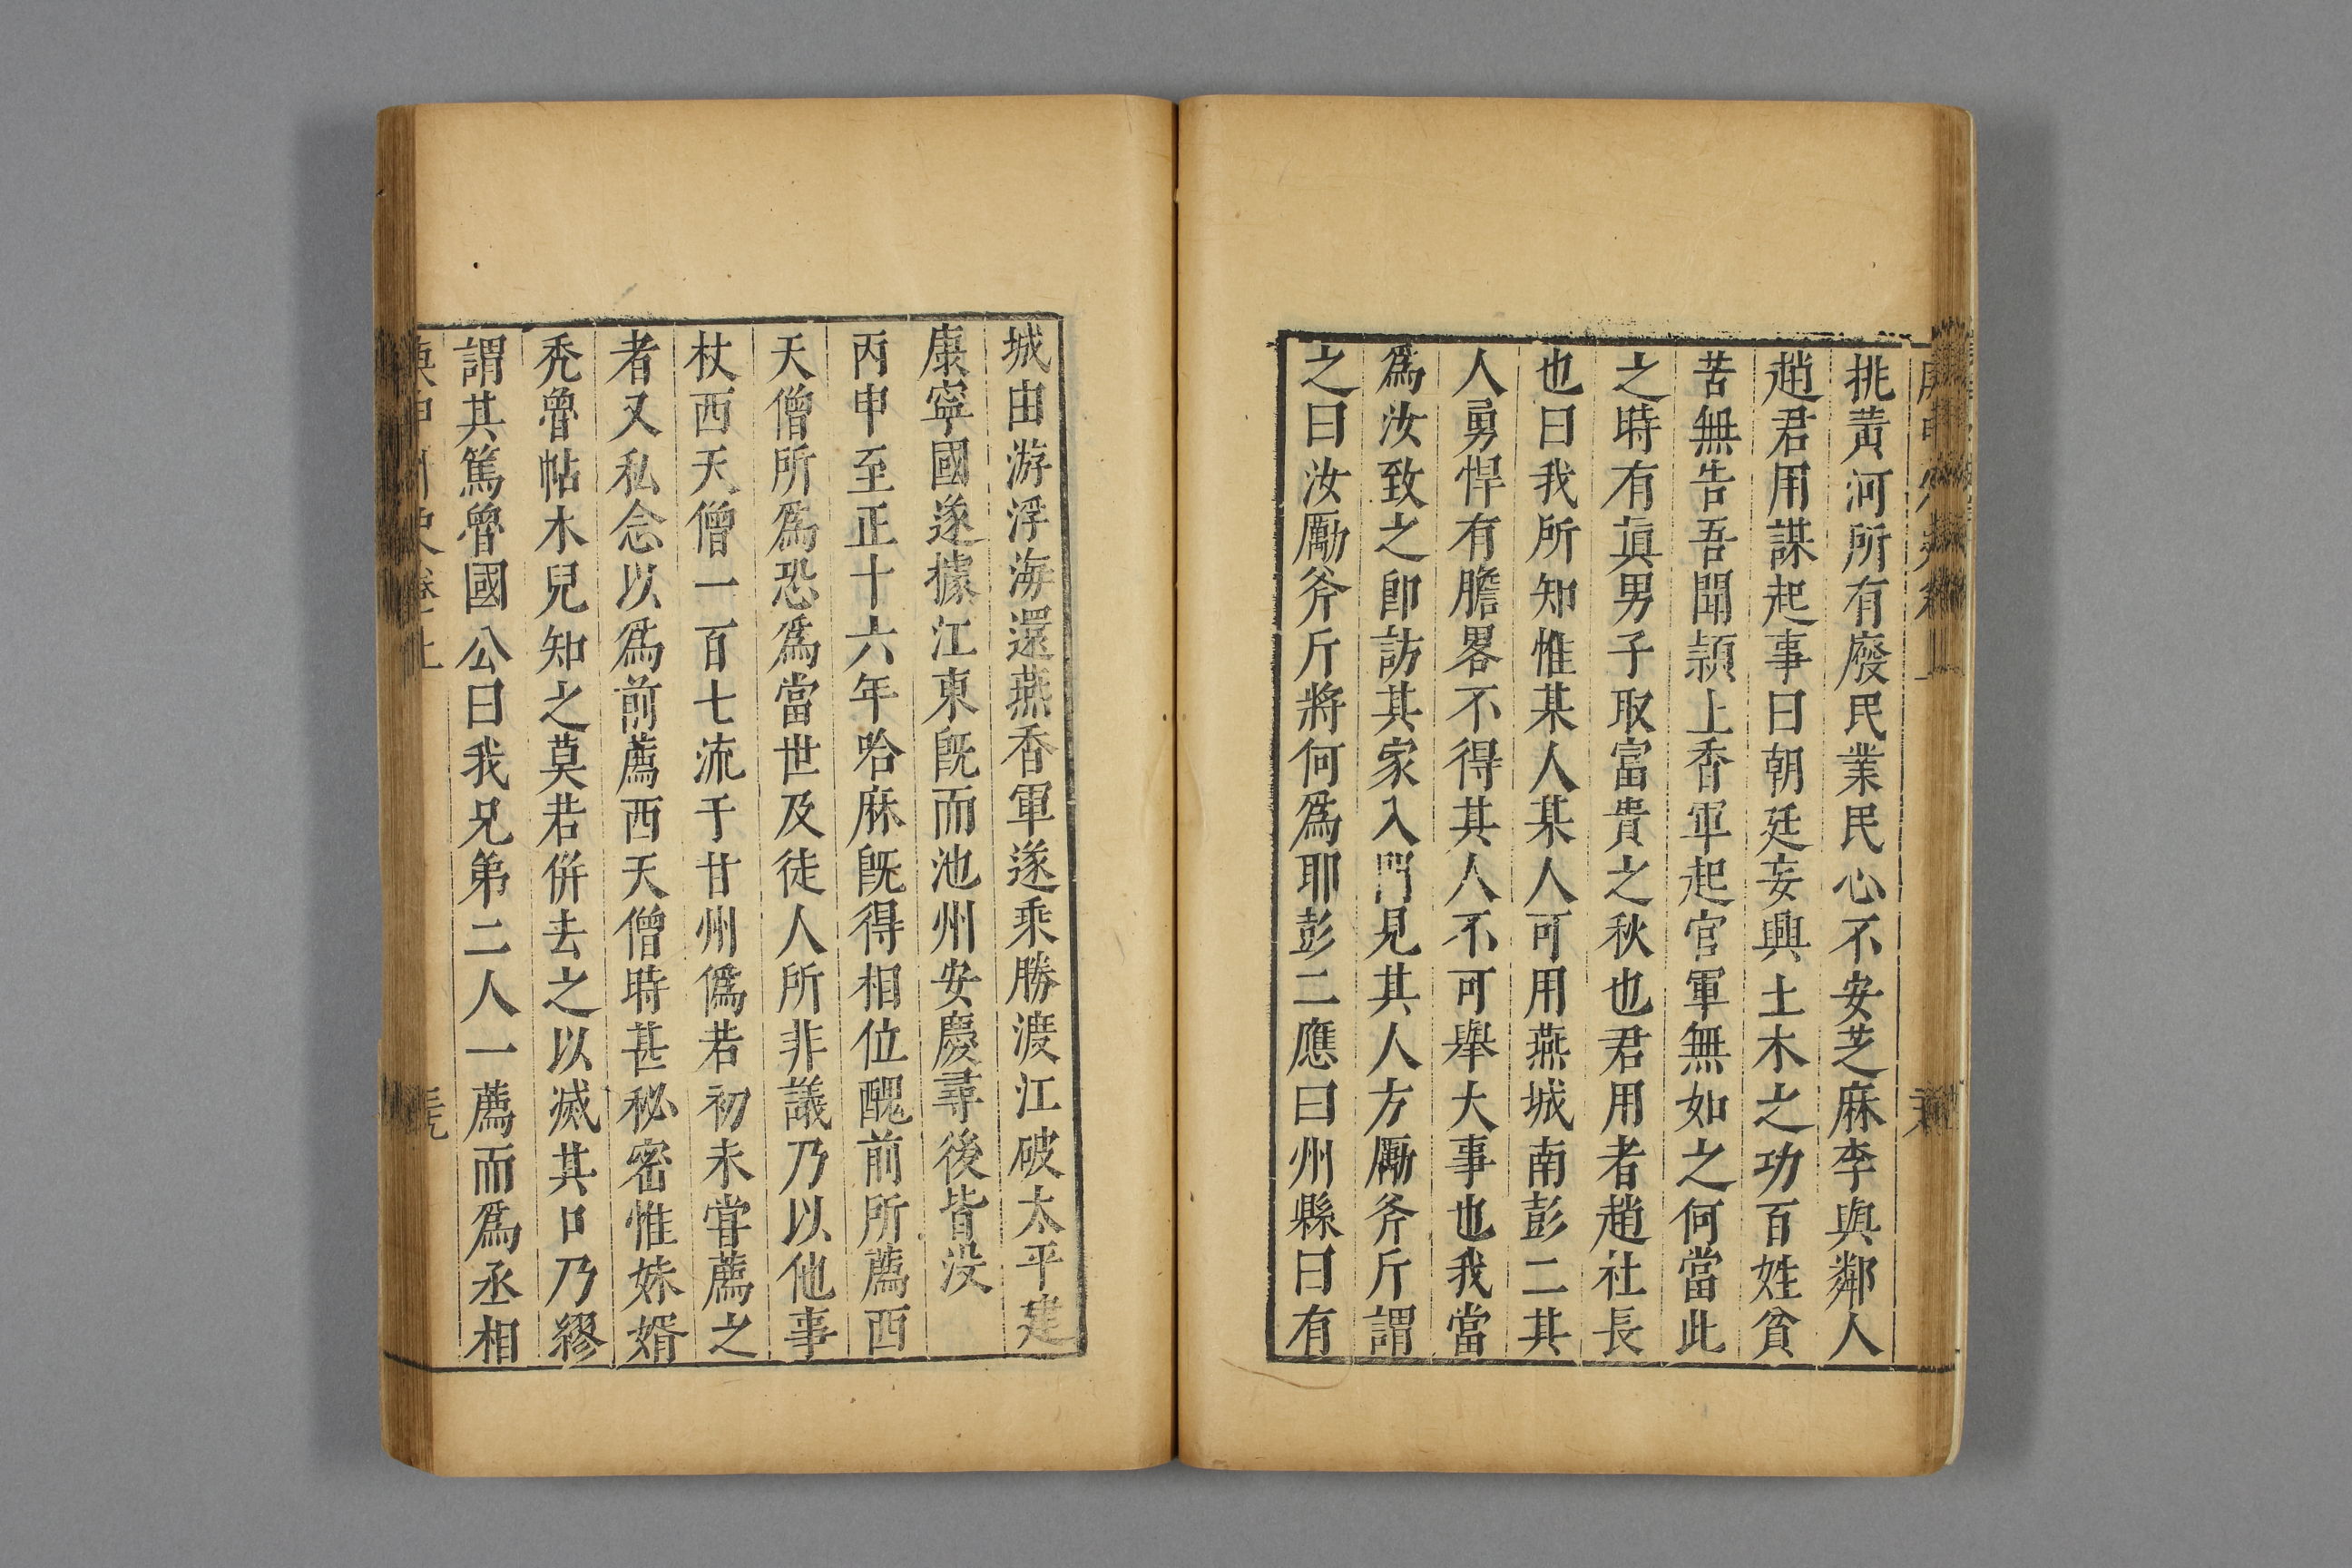 挑黃河所有廢民業民心不安芝麻李與鄰人
趙君用謀起事曰朝廷妄興土木之功百姓貧
苦無告吾聞頴上香軍起官軍無如之何當此
之時有眞男子取富貴之秋也君用者趙社長
也曰我所知惟某人某人可用燕城南彭二其
人勇悍有膽畧不得其人不可舉大事也我當
爲汝致之卽訪其家入門見其人方厲斧斤謂
之曰汝厲斧斤將何爲耶彭二應曰州縣曰有
城由游浮海還燕香軍遂乘勝渡江破太平建
康寧國遂據江東旣而池州安慶尋後皆没
丙申至正十六年哈麻旣得相位醜前所薦西
天僧所爲恐爲當世及徒人所非議乃以他事
杖西天僧一百七流于甘州僞若初未嘗薦之
者又私念以爲前薦西天僧時甚秘密惟妹婿
禿魯帖木兒知之莫若併去之以滅其口乃繆
謂其篤魯國公曰我兄弟二人一薦而爲丞相
庚申外史卷上